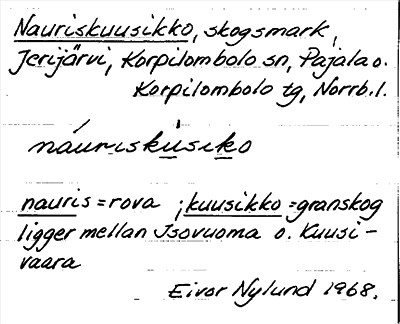 Nauriskuusikko, skogsmark,
Jerijärvi, Korpilombolo sn, Pajala o.
Korpilombolo tg, Norrb. l.
náuriskùsiko
nauris = rova ; kuusikko = granskog
ligger mellan Isovuoma o. Kuusi-
vaara
Eivor Nylund 1968.